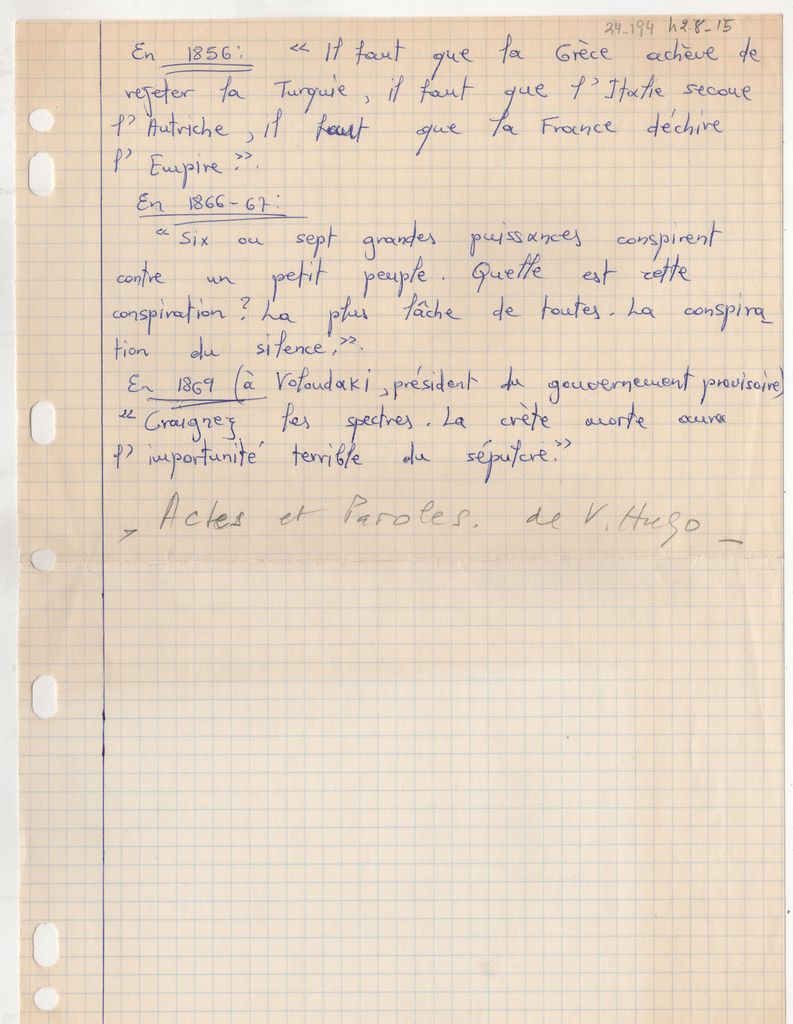 24-194 h2.8-15
En 1856: « Il faut que la Grèce achève de
rejeter la Turquie, il faut que l'Italie secoue
l'Autriche, il faut que la France déchire
l'Empire. ».
En 1866-67:
« Six ou sept grandes puissances conspirent
contre un petit peuple. Quelle est cette
conspiration? La plus lâche de toutes. La conspira_
tion du silence. ».
En 1869 (à Voloudaki, président du gouvernement provisoire)
« Craignez les spectres. La crète morte aura
l'importunité terrible du sépulcre. »
, Actes et Paroles. de V. Hugo _